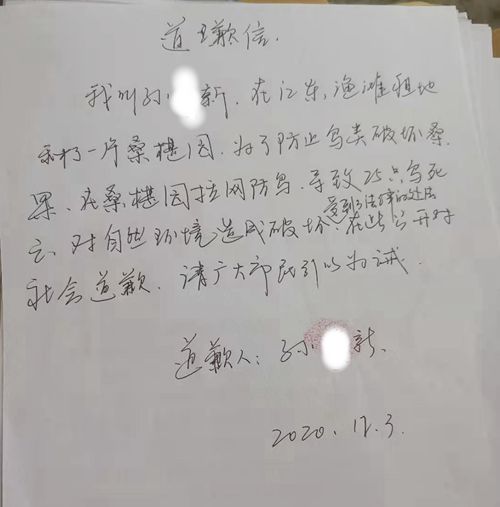 道歉信.
我叫孙 新. 在江东渔滩租地
承村一片桑椹园. 为了防止鸟类破坏桑
果、在桑椹园拉网防鸟. 导致25只鸟死
亡、对自然环境造成破坏. 受到了法律的处罚 在此公开对
社会道歉. 请广大市民引以为诫.
道歉人: 孙 新.
2020. 12. 3.